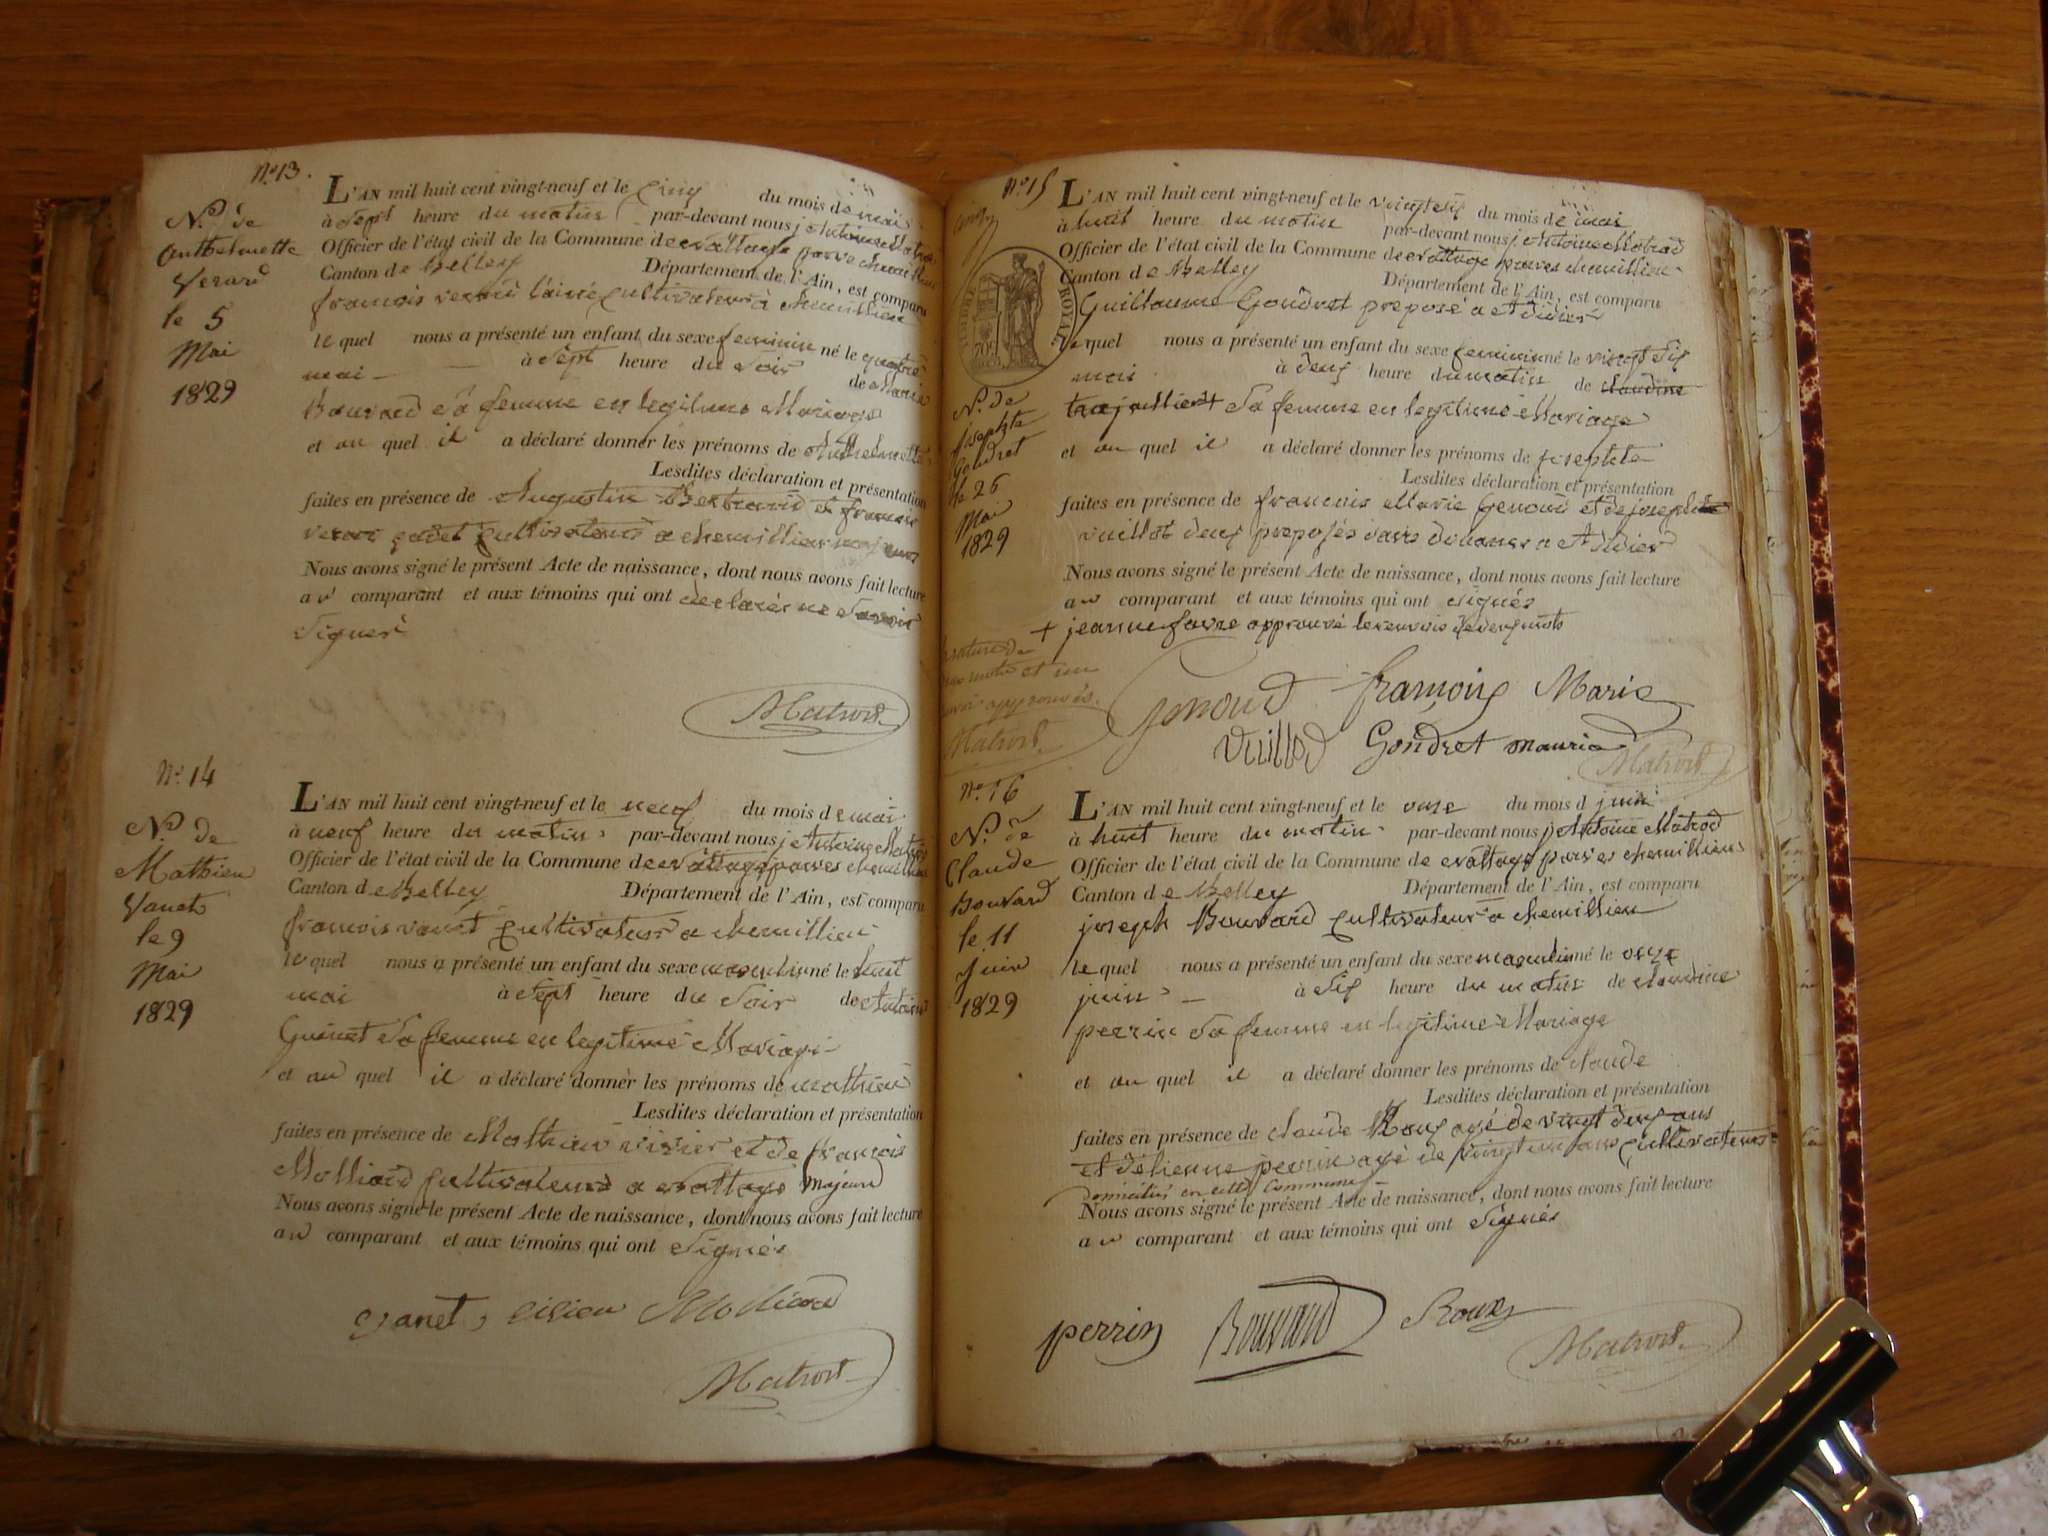 N° 13.
N.ce de
Anthelmette
Verard
le 5
Mai
1829
L'AN mil huit cent vingt-neuf et le cinq du mois de mai
à sept heure du matin par-devant nous j Antoine Matrod
Officier de l'état civil de la Commune de
Canton de Belley Département de l'Ain, est comparu
francois verard l'ainé cultivateur à chemillieu
lequel nous a présenté un enfant du sexe feminin né le quatre
mai à sept heure du soir de Marie
Bouvard sa femme en legitime Mariage
et au quel il a déclaré donner les prénoms de Anthelmette
Lesdites déclaration et présentation
faites en présence de Augustin Bertrand et francois
verard cadet cultivateurs a chemillieu majeurs
Nous avons signé le présent Acte de naissance, dont nous avons fait lecture
au comparant et aux témoins qui ont declarés ne savoir
signer
Matrod
N° 14
N.ce de
Mathieu
Vanet
le 9
Mai
1829
L'AN mil huit cent vingt-neuf et le neuf du mois de mai
à neuf heure du matin par-devant nous j Antoine Matrod
Officier de l'état civil de la Commune de
Canton de Belley Département de l'Ain, est comparu
francois vanet cultivateur a chemillieu
lequel nous a présenté un enfant du sexe masculin né le huit
mai à sept heure du soir de
Guinet sa femme en legitime Mariage
et au quel il a déclaré donner les prénoms de mathieu
Lesdites déclaration et présentation
faites en présence de Mathieu et de francois
Molliard cultivateurs a majeurs
Nous avons signé le présent Acte de naissance, dont nous avons fait lecture
au comparant et aux témoins qui ont signés
vanet Molliard
Matrod
N° 15
TIMBRE ROYAL
N.ce de
josephte
Gondret
le 26
Mai
1829
L'AN mil huit cent vingt-neuf et le vingt six du mois de mai
à huit heure du matin par-devant nous j Antoine Matrod
Officier de l'état civil de la Commune de
Canton de Belley Département de l'Ain, est comparu
Guillaume Gondret preposé a
lequel nous a présenté un enfant du sexe feminin né le vingt six
mai à deux heure du matin de claudine
+ sa femme en legitime Mariage
et au quel il a déclaré donner les prénoms de josephte
Lesdites déclaration et présentation
faites en présence de francois Marie Genoud et de joseph
vuillot deux preposés dans douanes a
Nous avons signé le présent Acte de naissance, dont nous avons fait lecture
au comparant et aux témoins qui ont signés
+ jeanne favre approuvé le renvois de deux mots
approuvés.
Matrod
Genoud françois Marie
Vuillod Gondret
Matrod
N° 16
N.ce de
Claude
Bouvard
le 11
Juin
1829
L'AN mil huit cent vingt-neuf et le onze du mois d juin
à huit heure du matin par-devant nous j Antoine Matrod
Officier de l'état civil de la Commune de
Canton de Belley Département de l'Ain, est comparu
joseph Bouvard cultivateur a chemillieu
lequel nous a présenté un enfant du sexe masculin né le onze
juin à six heure du matin de claudine
perrin sa femme en legitime Mariage
et au quel il a déclaré donner les prénoms de claude
Lesdites déclaration et présentation
faites en présence de claude Roux agé de vingt deux ans
et d'etienne perrin agé de vingt un ans cultivateurs
domiciliés en cette Commune
Nous avons signé le présent Acte de naissance, dont nous avons fait lecture
au comparant et aux témoins qui ont signés
perrin Bouvard Roux
Matrod